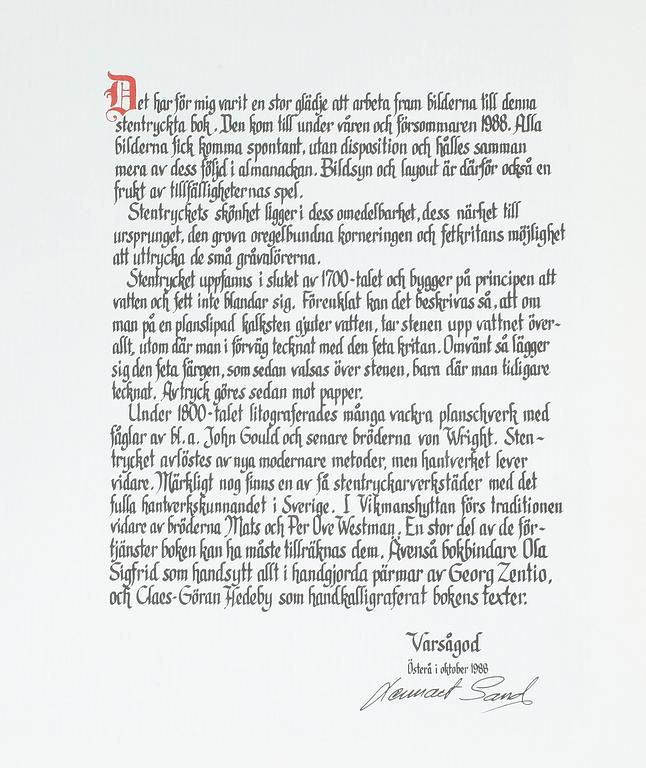 Det har för mig varit en stor glädje att arbeta fram bilderna till denna
stentryckta bok. Den kom till under våren och försommaren 1988. Alla
bilderna fick komma spontant, utan disposition och hålles samman
mera av dess följd i almanackan. Bildsyn och layout är därför också en
frukt av tillfälligheternas spel.
Stentryckets skönhet ligger i dess omedelbarhet, dess närhet till
ursprunget, den grova oregelbundna korneringen och fetkritans möjlighet
att uttrycka de små gråvalörerna.
Stentrycket uppfanns i slutet av 1700-talet och bygger på principen att
vatten och fett inte blandar sig. Förenklat kan det beskrivas så, att om
man på en planslipad kalksten gjuter vatten, tar stenen upp vattnet över-
allt, utom där man i förväg tecknat med den feta kritan. Omvänt så lägger
sig den feta färgen, som sedan valsas över stenen, bara där man tidigare
tecknat. Avtryck göres sedan mot papper.
Under 1800-talet litograferades många vackra planschverk med
fåglar av bl.a. John Gould och senare bröderna von Wright. Sten-
trycket avlöstes av nya modernare metoder, men hantverket lever
vidare. Märkligt nog finns en av få stentryckarverkstäder med det
fulla hantverkskunnandet i Sverige. I Vikmanshyttan förs traditionen
vidare av bröderna Mats och Per Ove Westman. En stor del av de för-
tjänster boken kan ha måste tillräknas dem. Ävenså bokbindare Ola
Sigfrid som handsytt allt i handgjorda pärmar av Georg Zentio,
och Claes-Göran Hedeby som handkalligraferat bokens texter.
Varsågod
Österå i oktober 1988
Lennart Sand